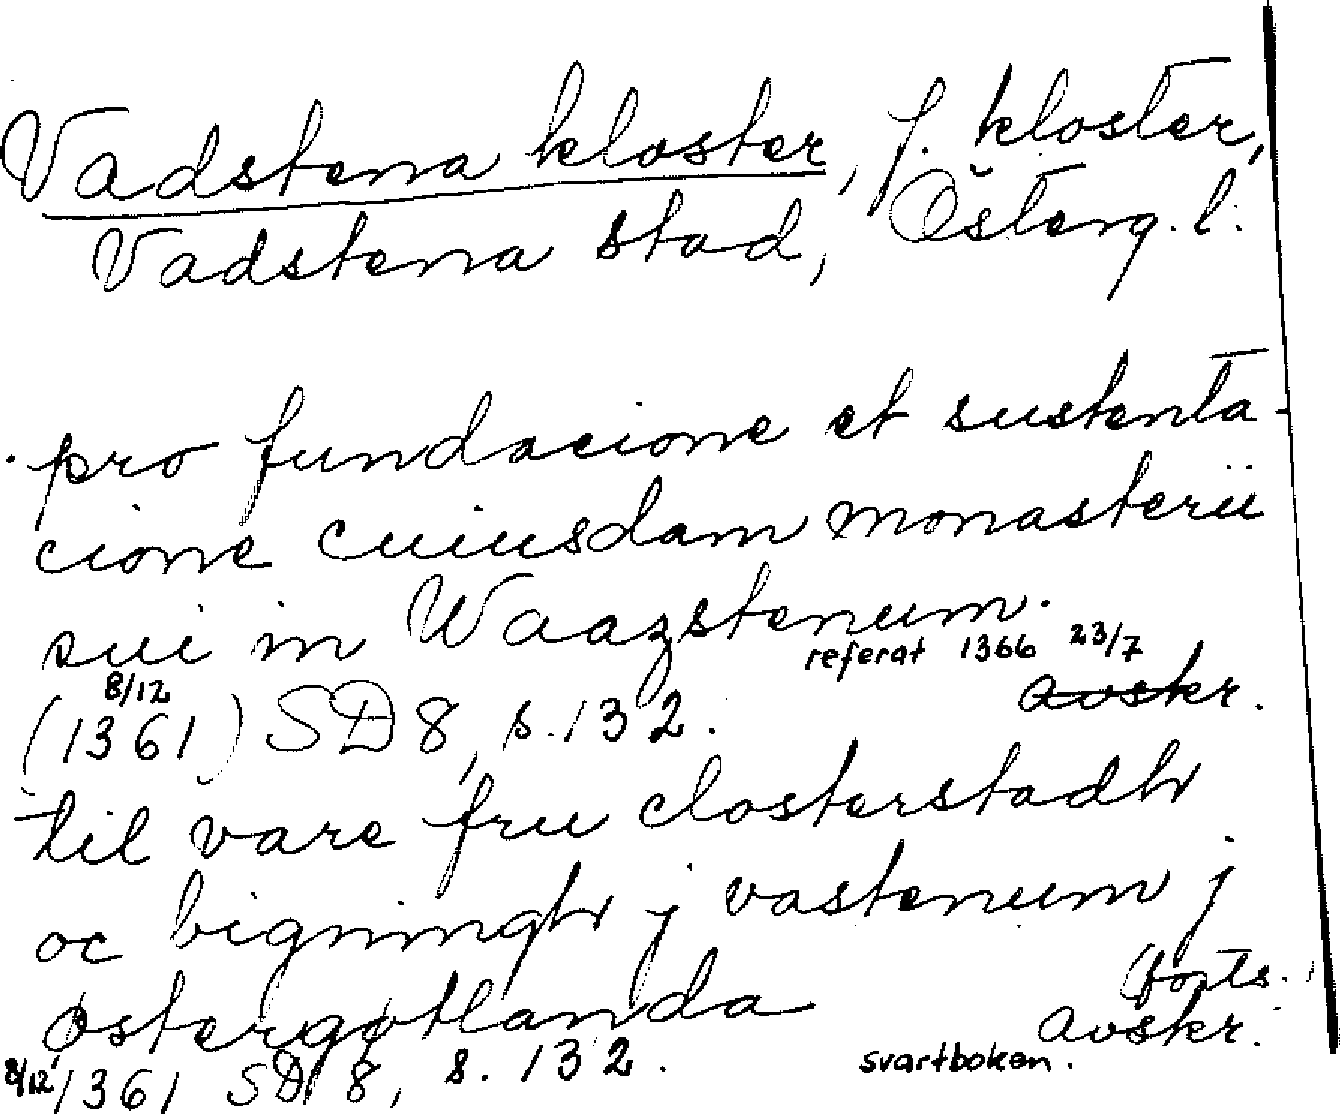 Vadstena kloster, f. kloster,
Vadstena stad, Österg. l.
pro fundacione et sustenta-
cione cuiusdam monasterii
sui in Waazstenum.
referat 1366 23/7
8/12 avskr.
(1361) SD 8, s. 132.
til vare fru closterstadh
oc bigningh j vastenum j
østergøtlanda (forts.)
avskr.
8/12 1361 SD 8, s. 132. svartboken.